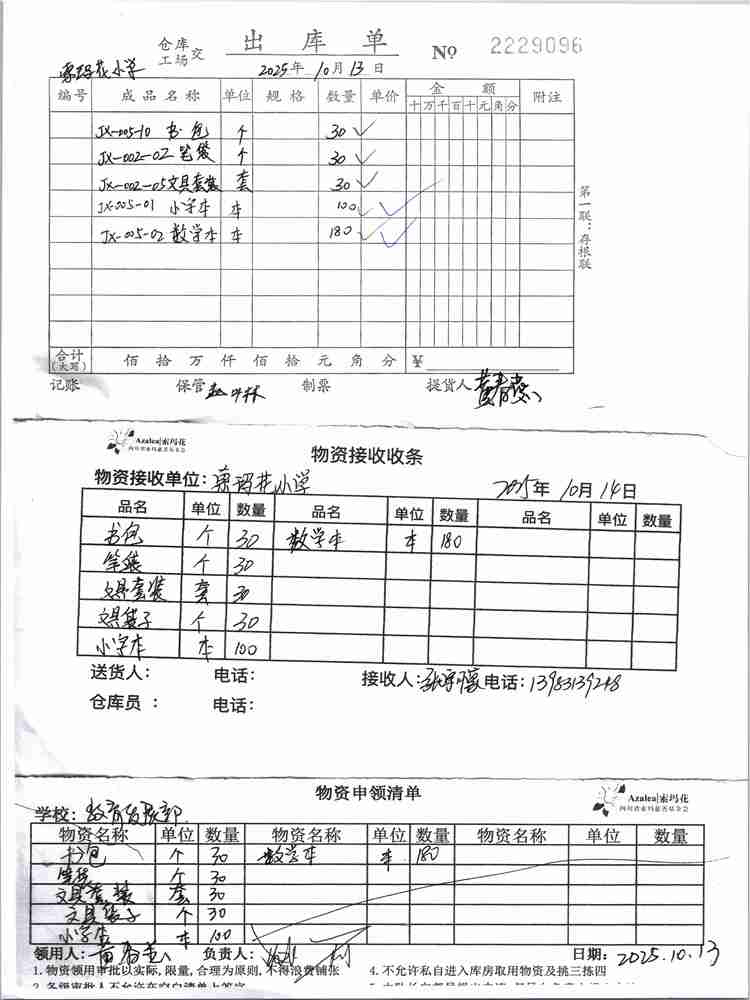 仓库 工场 交 出库单 № 2229096
索玛花小学 2025年10月13日
编号 成品名称 单位 规格 数量 单价 金额 附注
十万千百十元角分
JX-005-10 书包 个 30
JX-002-02 笔袋 个 30
JX-002-05 文具套装 套 30
JX-005-01 小字本 本 100
JX-005-02 数学本 本 180
第一联：存根联
合计(大写) 佰拾万仟佰拾元角分 ¥
记账 保管 制票 提货人
Azalea|索玛花
四川省索玛慈善基金会
物资接收收条
物资接收单位：索玛花小学 2025年10月14日
品名 单位 数量 品名 单位 数量 品名 单位 数量
书包 个 30 数学本 本 180
笔袋 个 30
文具套装 套 30
文具袋子 个 30
小字本 本 100
送货人： 电话： 接收人： 电话：13983139248
仓库员： 电话：
物资申领清单
Azalea|索玛花
四川省索玛慈善基金会
学校：教育发展部
物资名称 单位 数量 物资名称 单位 数量 物资名称 单位 数量
书包 个 30 数学本 本 180
笔袋 个 30
文具套装 套 30
文具袋子 个 30
小字本 本 100
领用人： 负责人： 日期：2025.10.13
1.物资领用审批以实际,限量,合理为原则,不得浪费铺张 4.不允许私自进入库房取用物资及挑三拣四